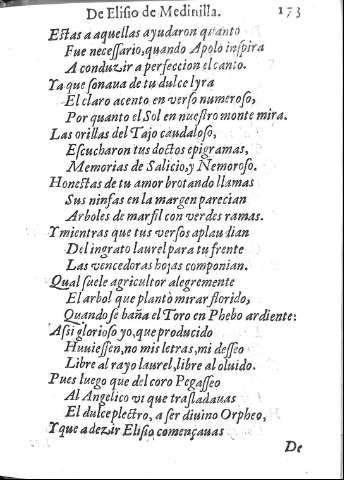 De Elisio de Medinilla. 173
Estas a aquellas ayudaron quanto
Fue necessario, quando Apolo inspira
A conduzir a perfeccion el canto.
Ya que sonaua de tu dulce lyra
El claro acento en verso numeroso,
Por quanto el Sol en nuestro monte mira.
Las orillas del Tajo caudaloso,
Escucharon tus doctos epigramas,
Memorias de Salicio, y Nemoroso.
Honestas de tu amor brotando llamas
Sus ninfas en la margen parecian
Arboles de marfil con verdes ramas.
Y mientras que tus versos aplaudian
Del ingrato laurel para tu frente
Las vencedoras hojas componian.
Qual suele agricultor alegremente
El arbol que plantò mirar florido,
Quando se baña el Toro en Phebo ardiente:
Assi glorioso yo, que producido
Huuiessen, no mis letras, mi desseo
Libre al rayo laurel, libre al oluido.
Pues luego que del coro Pegasseo
Al Angelico vi que trasladauas
El dulce plectro, a ser diuino Orpheo,
Y que a dezir Elisio començauas
De